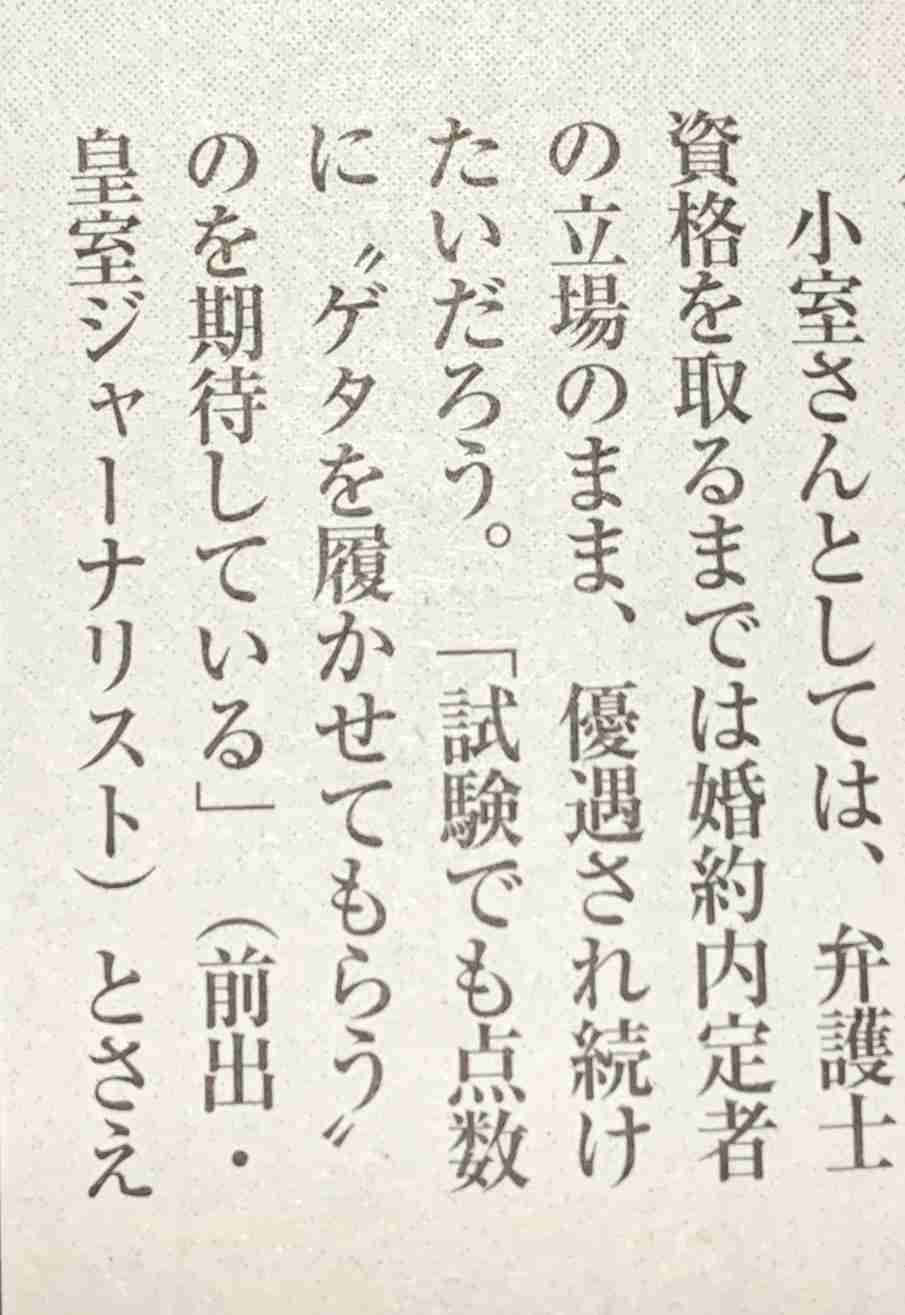 小室さんとしては、弁護士
資格を取るまでは婚約内定者
の立場のまま、優遇され続け
たいだろう。「試験でも点数
に〝ゲタを履かせてもらう〟
のを期待している」（前出・
皇室ジャーナリスト）とさえ